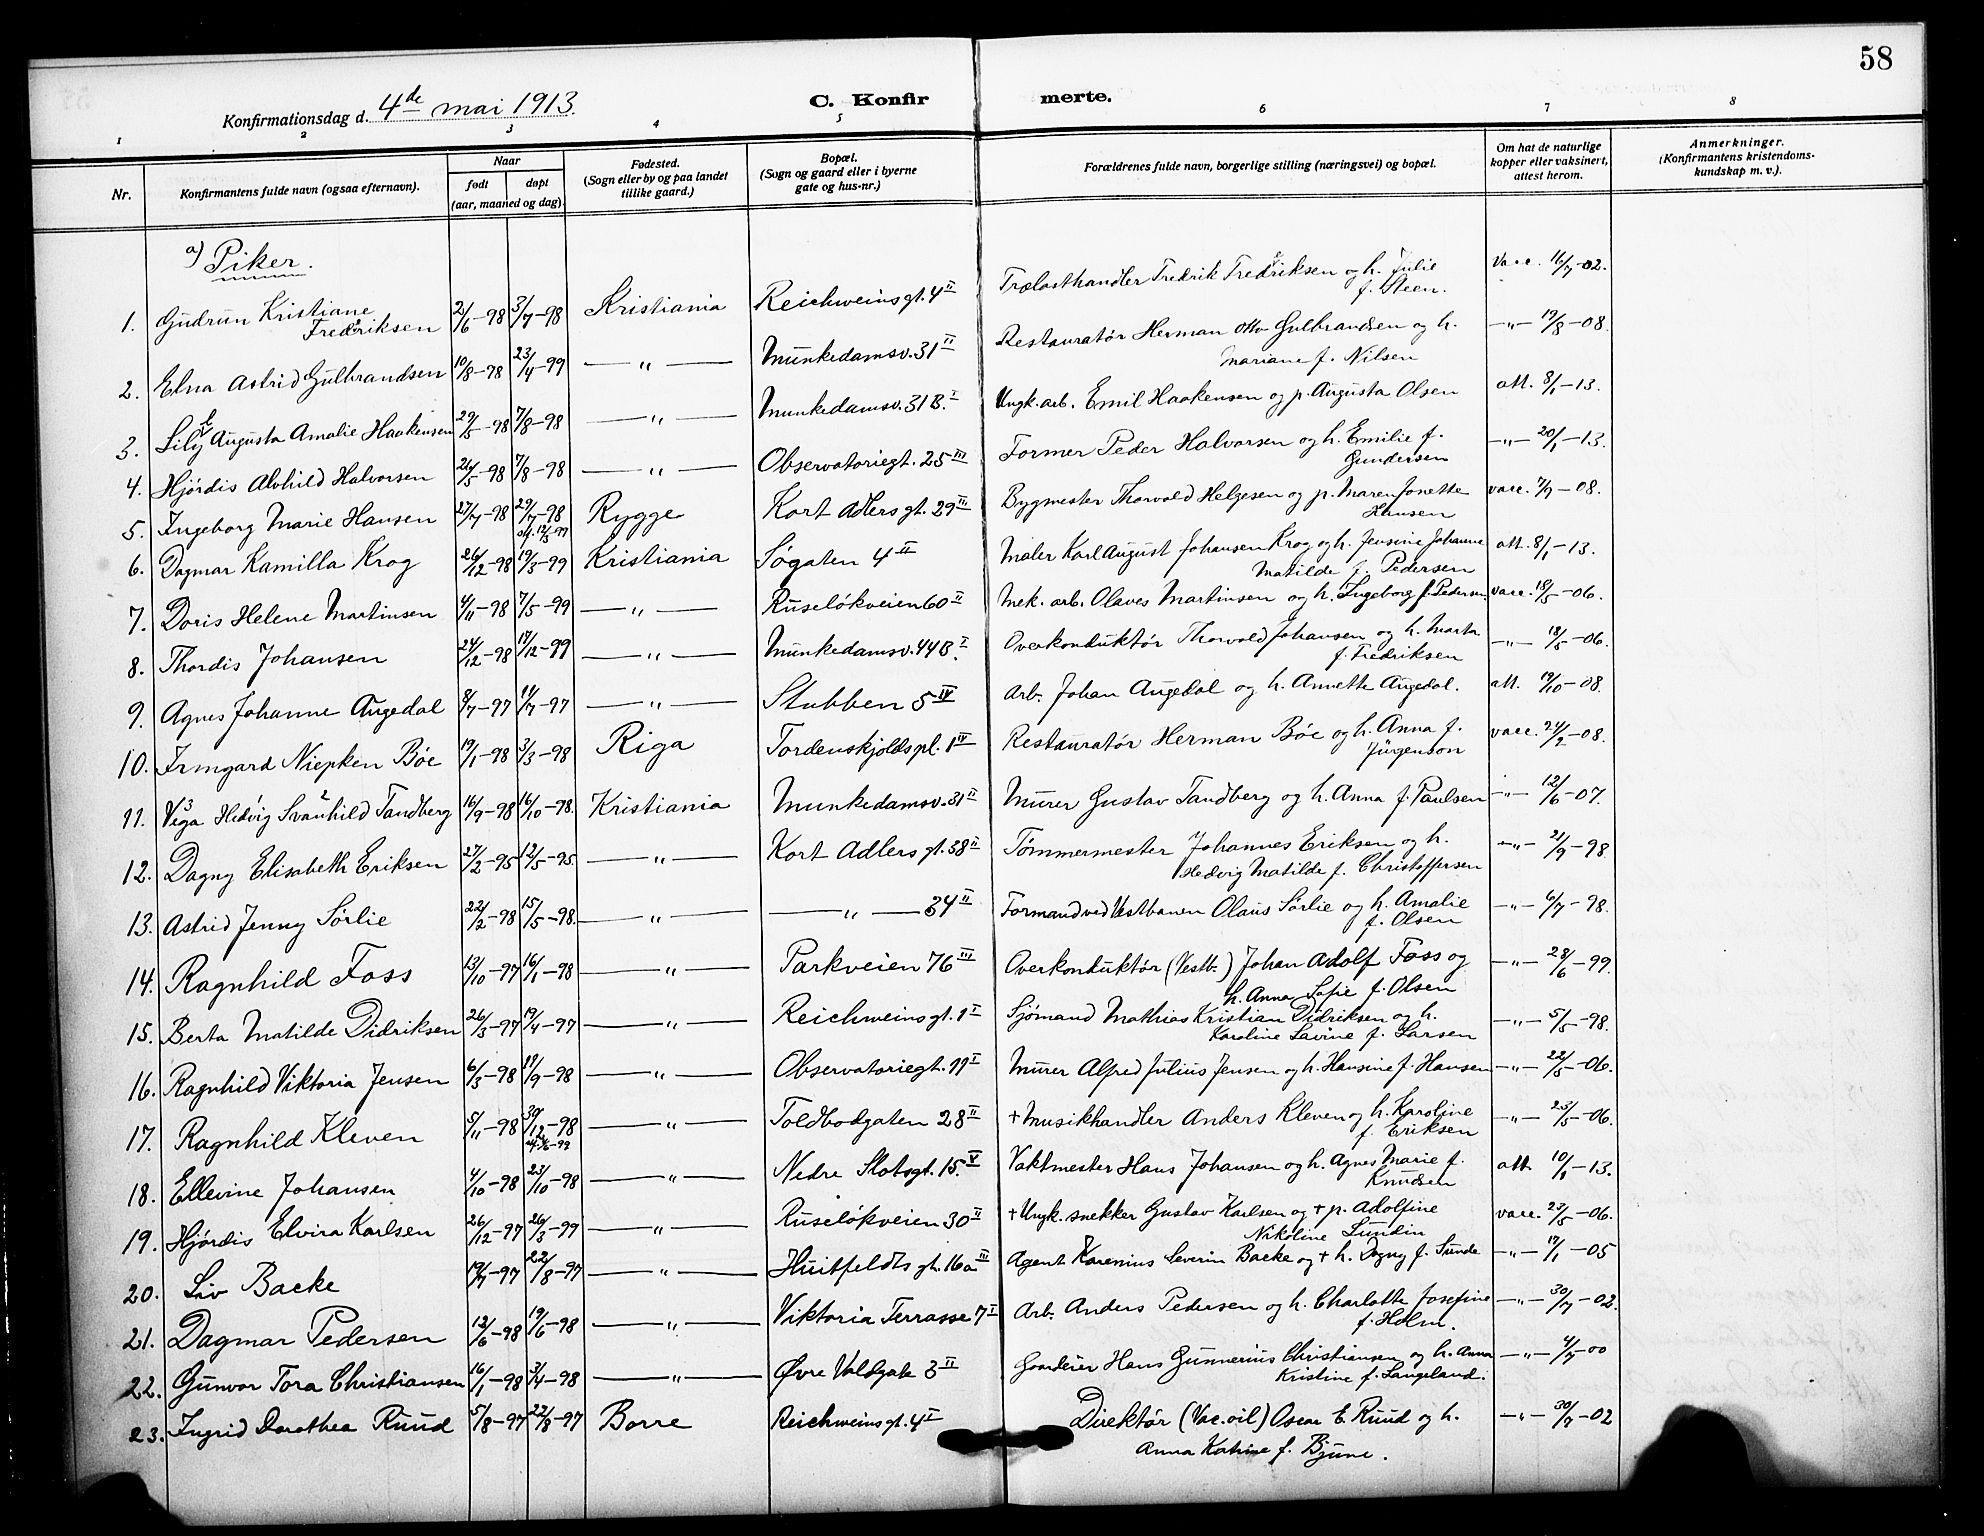 58
Konfirmationsdag d. 4de mai 1913.
C. Konfir merte.
1 2 3 4 5 6 7 8
Nr. Konfirmantens fulde navn (ogsaa efternavn). Naar født døpt (aar, maaned og dag). Fødested. (Sogn eller by og paa landet tillike gaard.) Bopæl. (Sogn og gaard eller i byerne gate og hus-nr.) Forældrenes fulde navn, borgerlige stilling (næringsvei) og bopæl. Om hat de naturlige kopper eller vaksinert, attest herom. Anmerkninger. (Konfirmantens kristendoms-kundskap m. v.).
a) Piker.
1. Gudrun Kristiane Fredriksen 2/6-98 3/7-98 Kristiania Reichweinsgt. 4 II Trælasthandler Fredrik Fredriksen og h. Julie f. Steen. Vacc. 16/7-02.
2. Elna Astrid Gulbrandsen 10/8-98 23/4-99 —"— Munkedamsv. 31 II Restauratør Herman Otto Gulbrandsen og h. Mariane f. Nilsen —"— 19/8-08.
3. Lily Augusta Amalie Haakensen 29/5-98 7/8-98 —"— Munkedamsv. 31 B. I Ungk. arb. Emil Haakensen og p. Augusta Olsen att. 8/1-13.
4. Hjørdis Alvhild Halvorsen 26/5-98 7/8-98 —"— Observatoriegt. 25 III Former Peder Halvorsen og h. Emilie f. Gundersen —"— 20/1-13.
5. Ingeborg Marie Hansen 27/7-98 29/7-98 Rygge Kort Adlers gt. 29 III Bygmester Thorvald Helgesen og p. Maren Jonette Hansen vacc. 7/7-08.
6. Dagmar Kamilla Krog 26/12-98 19/3-99 Kristiania Søgaten 4 II Maler Karl August Johansen Krog og h. Jensine Johanne Matilde f. Pedersen att. 8/1-13.
7. Doris Helene Martinsen 4/11-98 7/5-99 —"— Ruseløkveien 60 II Mek. arb. Olaves Martinsen og h. Ingeborg f. Pedersen vacc. 18/5-06.
8. Thordis Johansen 24/12-98 17/12-99 —"— Munkedamsv. 44 B. I Overkonduktør Thorvald Johansen og h. Marta f. Fredriksen —"— 18/5-06.
9. Agnes Johanne Augedal 8/7-97 11/7-97 —"— Stubben 5 IV Arb. Johan Augedal og h. Annette Augedal. att. 19/10-08.
10. Irmgard Niepken Bøe 19/1-98 3/3-98 Riga Tordenskjolds pl. 1 IV Restauratør Herman Bøe og h. Anna f. Jürgenson vacc. 24/2-08.
11. Vega Hedvig Svanhild Tandberg 16/9-98 16/10-98. Kristiania Munkedamsv. 31 II Murer Gustav Tandberg og h. Anna f. Paulsen —"— 12/6-07.
12. Dagny Elisabeth Eriksen 27/2-95 12/5-95 —"— Kort Adlers gt. 38 II Tømmermester Johannes Eriksen og h. Hedvig Matilde f. Christoffersen —"— 21/9-98.
13. Astrid Jenny Sørlie 22/2-98 15/5-98. —"— —"— 34 II Formand ved Vestbanen Olaus Sørlie og h. Amalie f. Olsen —"— 6/7-98.
14. Ragnhild Foss 13/10-97 16/1-98 —"— Parkveien 76 III Overkonduktør (Vestb.) Johan Adolf Foss og h. Anna Sofie f. Olsen —"— 28/6-99.
15. Berta Matilde Didriksen 26/3-97 19/4-97 —"— Reichweins gt. 1 I Sjømand Mathias Kristian Didriksen og h. Karoline Lavine f. Larsen —"— 5/5-98.
16. Ragnhild Viktoria Jensen 6/3-98 18/9-98 —"— Observatoriegt. 11 I Murer Alfred Julius Jensen og h. Hansine f. Hansen —"— 22/5-06.
17. Ragnhild Kleven 5/11-98 30/12-98 —"— Toldbodgaten 28 II + Musikhandler Anders Kleven og h. Karoline f. Eriksen —"— 23/5-06.
18. Ellevine Johansen 4/10-98 23/10-98 —"— Nedre Slotsgt. 15. V Vaktmester Hans Johansen og h. Agnes Marie f. Knudsen att. 10/1-13.
19. Hjørdis Elvira Karlsen 26/12-97 26/3-99 —"— Ruseløkveien 30 II + Ungk. snekker Gustav Karlsen og + p. Adolfine Nikoline Lundin vacc. 23/5-06.
20. Liv Backe 19/7-97 22/8-97 —"— Huitfeldts gt. 16a III Agent Karenius Severin Backe og + h. Dagny f. Sunde —"— 17/1-05
21. Dagmar Pedersen 12/6-98 19/6-98 —"— Viktoria Terrasse 7 I Arb. Anders Pedersen og h. Charlotte Josefine f. Holm. —"— 30/7-02.
22. Gunvor Tora Christiansen 16/1-98 3/4-98 —"— Øvre Voldgate 3 II Gaardeier Hans Gunnerius Christiansen og h. Anna Kristine f. Langeland. —"— 4/7-00
23. Ingrid Dorothea Ruud 5/8-97 22/8-97 Borre Reichweins gt. 4 I Direktør (Vac. oil) Oscar E. Ruud og h. Anna Katrine f. Bjune. —"— 30/7-02